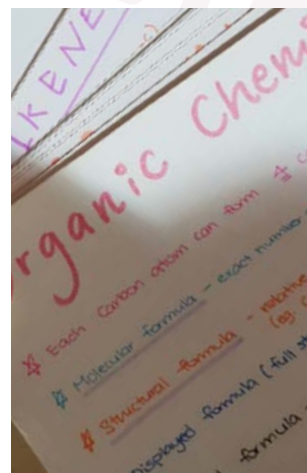 KENE
rganic Chem
# Each Carbon atom can form #
# Molecular formula - exact number
# Structural formula - relative
(eg.
isplayed formula (full st
formula